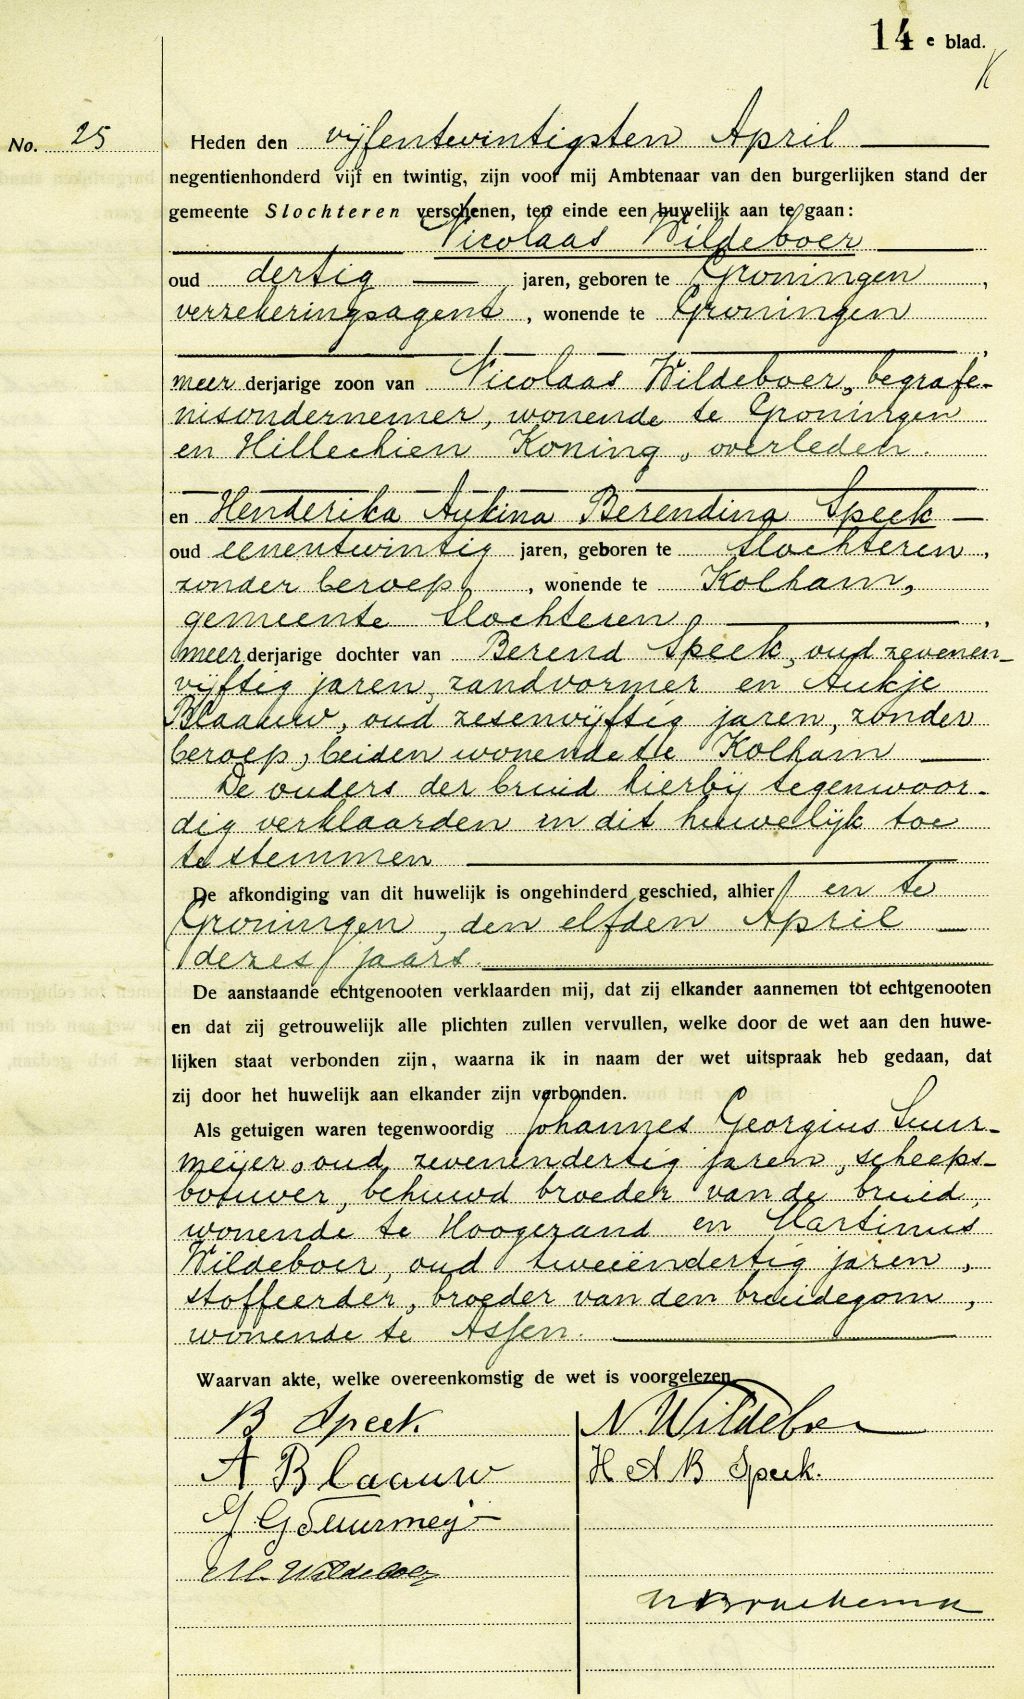 14 e blad.
No. 25
Heden den vijfentwintigsten April
negentienhonderd vijf en twintig, zijn voor mij Ambtenaar van den burgerlijken stand der
gemeente Slochteren verschenen, ten einde een huwelijk aan te gaan:
Nicolaas Wildeboer
oud dertig jaren, geboren te Groningen,
verzekeringsagent, wonende te Groningen
meerderjarige zoon van Nicolaas Wildeboer, begrafe-
nisondernemer, wonende te Groningen
en Hillechien Koning, overleden.
en Henderika Aukina Berendina Speek
oud eenentwintig jaren, geboren te Slochteren,
zonder beroep, wonende te Kolham,
gemeente Slochteren,
meerderjarige dochter van Berend Speek, oud zevenen-
vijftig jaren, zandvormer en Aukje
Blaauw, oud zesenvijftig jaren, zonder
beroep, beiden wonende te Kolham
De ouders der bruid hierbij tegenwoor-
dig verklaarden in dit huwelijk toe
te stemmen
De afkondiging van dit huwelijk is ongehinderd geschied, alhier en te
Groningen, den elfden April
dezes jaars.
De aanstaande echtgenooten verklaarden mij, dat zij elkander aannemen tot echtgenooten
en dat zij getrouwelijk alle plichten zullen vervullen, welke door de wet aan den huwe-
lijken staat verbonden zijn, waarna ik in naam der wet uitspraak heb gedaan, dat
zij door het huwelijk aan elkander zijn verbonden.
Als getuigen waren tegenwoordig Johannes Georgius Suur-
meijer, oud zevenendertig jaren, scheeps-
bouwer, behuwd broeder van de bruid,
wonende te Hoogezand en Martinus
Wildeboer, oud tweeëndertig jaren,
stoffeerder, broeder van den bruidegom,
wonende te Assen.
Waarvan akte, welke overeenkomstig de wet is voorgelezen.
B Speek
N. Wildeboer
A Blaauw
H A B Speek.
J G Suurmeijer
M. Wildeboer